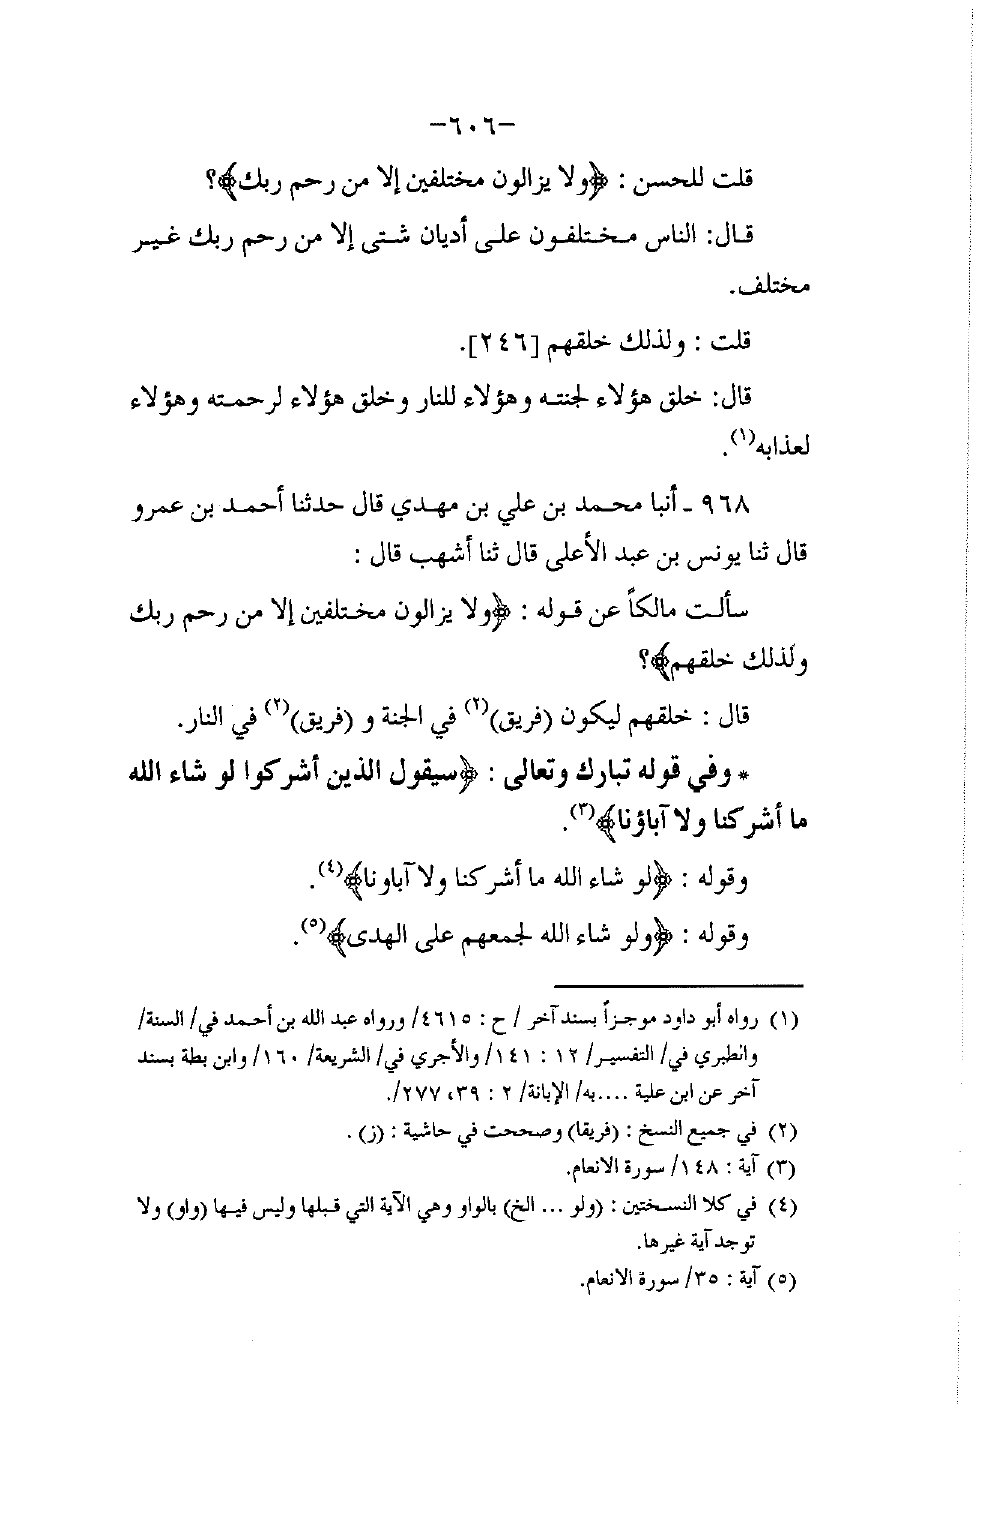 -٦٠٦-
قلت للحسن : ﴿ولا يزالون مختلفين إلا من رحم ربك﴾؟
قال: الناس مختلفون على أديان شتى إلا من رحم ربك غير
مختلف.
قلت : ولذلك خلقهم [٢٤٦].
قال: خلق هؤلاء لجنته وهؤلاء للنار وخلق هؤلاء لرحمته وهؤلاء
لعذابه(١).
٩٦٨ ـ أنبا محمد بن علي بن مهدي قال حدثنا أحمد بن عمرو
قال ثنا يونس بن عبد الأعلى قال ثنا أشهب قال :
سألت مالكاً عن قوله : ﴿ولا يزالون مختلفين إلا من رحم ربك
ولذلك خلقهم﴾؟
قال : خلقهم ليكون (فريق)(٢) في الجنة و (فريق)(٢) في النار.
* وفي قوله تبارك وتعالى : ﴿سيقول الذين أشركوا لو شاء الله
ما أشركنا ولا آباؤنا﴾(٣).
وقوله : ﴿لو شاء الله ما أشركنا ولا آباونا﴾(٤).
وقوله : ﴿ولو شاء الله لجمعهم على الهدى﴾(٥).
(١) رواه أبو داود موجزاً بسند آخر / ح : ٤٦١٥/ ورواه عبد الله بن أحمد في/ السنة/
والطبري في/ التفسير/ ١٢ : ١٤١/ والأجري في/ الشريعة/ ١٦٠/ وابن بطة بسند
آخر عن ابن علية ....به/ الإبانة/ ٢ : ٣٩، ٢٧٧/.
(٢) في جميع النسخ : (فريقا) وصححت في حاشية : (ز) .
(٣) آية : ١٤٨/ سورة الانعام.
(٤) في كلا النسختين : (ولو ... الخ) بالواو وهي الآية التي قبلها وليس فيها (واو) ولا
توجد آية غيرها.
(٥) آية : ٣٥/ سورة الانعام.